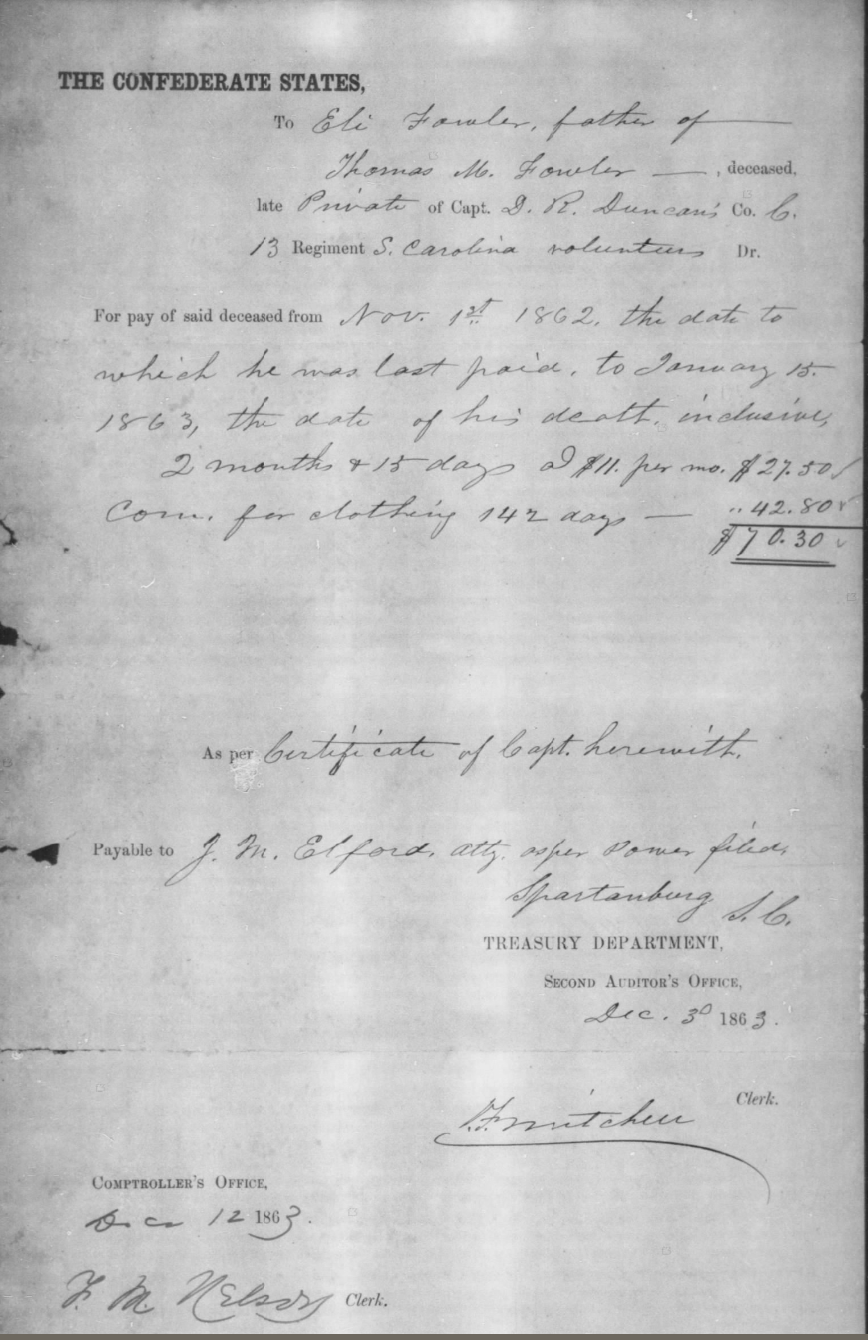 THE CONFEDERATE STATES,
To Eli Fowler, father of
Thomas M. Fowler —, deceased,
late Private of Capt. D. R. Duncan's Co. C.
13 Regiment S. Carolina volunteers Dr.
For pay of said deceased from Nov. 1st 1862, the date to
which he was last paid, to January 15.
1863, the date of his death, inclusive,
2 months & 15 days @ $11. per mo. $27.50
Com. for clothing 142 days — " 42.80
$70.30
As per Certificate of Capt. herewith.
Payable to J. M. Elford, atty. as per Power filed,
Spartanburg S. C.
TREASURY DEPARTMENT,
SECOND AUDITOR'S OFFICE,
Dec. 3d 1863.
Mitchell
Clerk.
COMPTROLLER'S OFFICE,
Dec 12 1863.
F. M. Nelson Clerk.